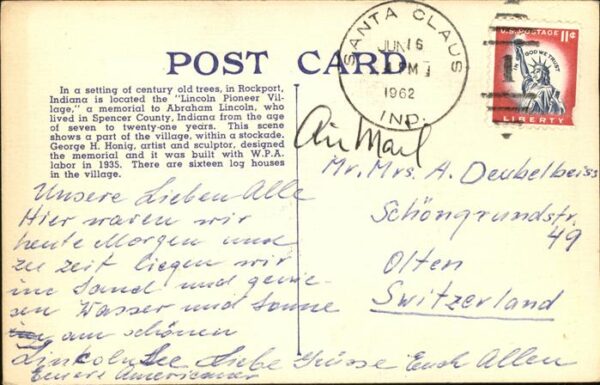 SANTA CLAUS
JUN 16
PM
1962
IND.
U.S. POSTAGE 11¢
IN GOD WE TRUST
LIBERTY
POST CARD
In a setting of century old trees, in Rockport,
Indiana is located the "Lincoln Pioneer Vil-
lage," a memorial to Abraham Lincoln, who
lived in Spencer County, Indiana from the age
of seven to twenty-one years. This scene
shows a part of the village, within a stockade.
George H. Honig, artist and sculptor, designed
the memorial and it was built with W.P.A.
labor in 1935. There are sixteen log houses
in the village.
Unsere Lieben Alle
Hier waren wir
heute Morgen und
zu zeit liegen wir
im Sand und genie-
sen Wasser und Sonne
am schönen
Lincoln See Liebe Grüsse Euch Allen
Eure Americaner
Air Mail
Mr. Mrs. A. Deubelbeiss
Schöngrundstr.
49
Olten
Switzerland